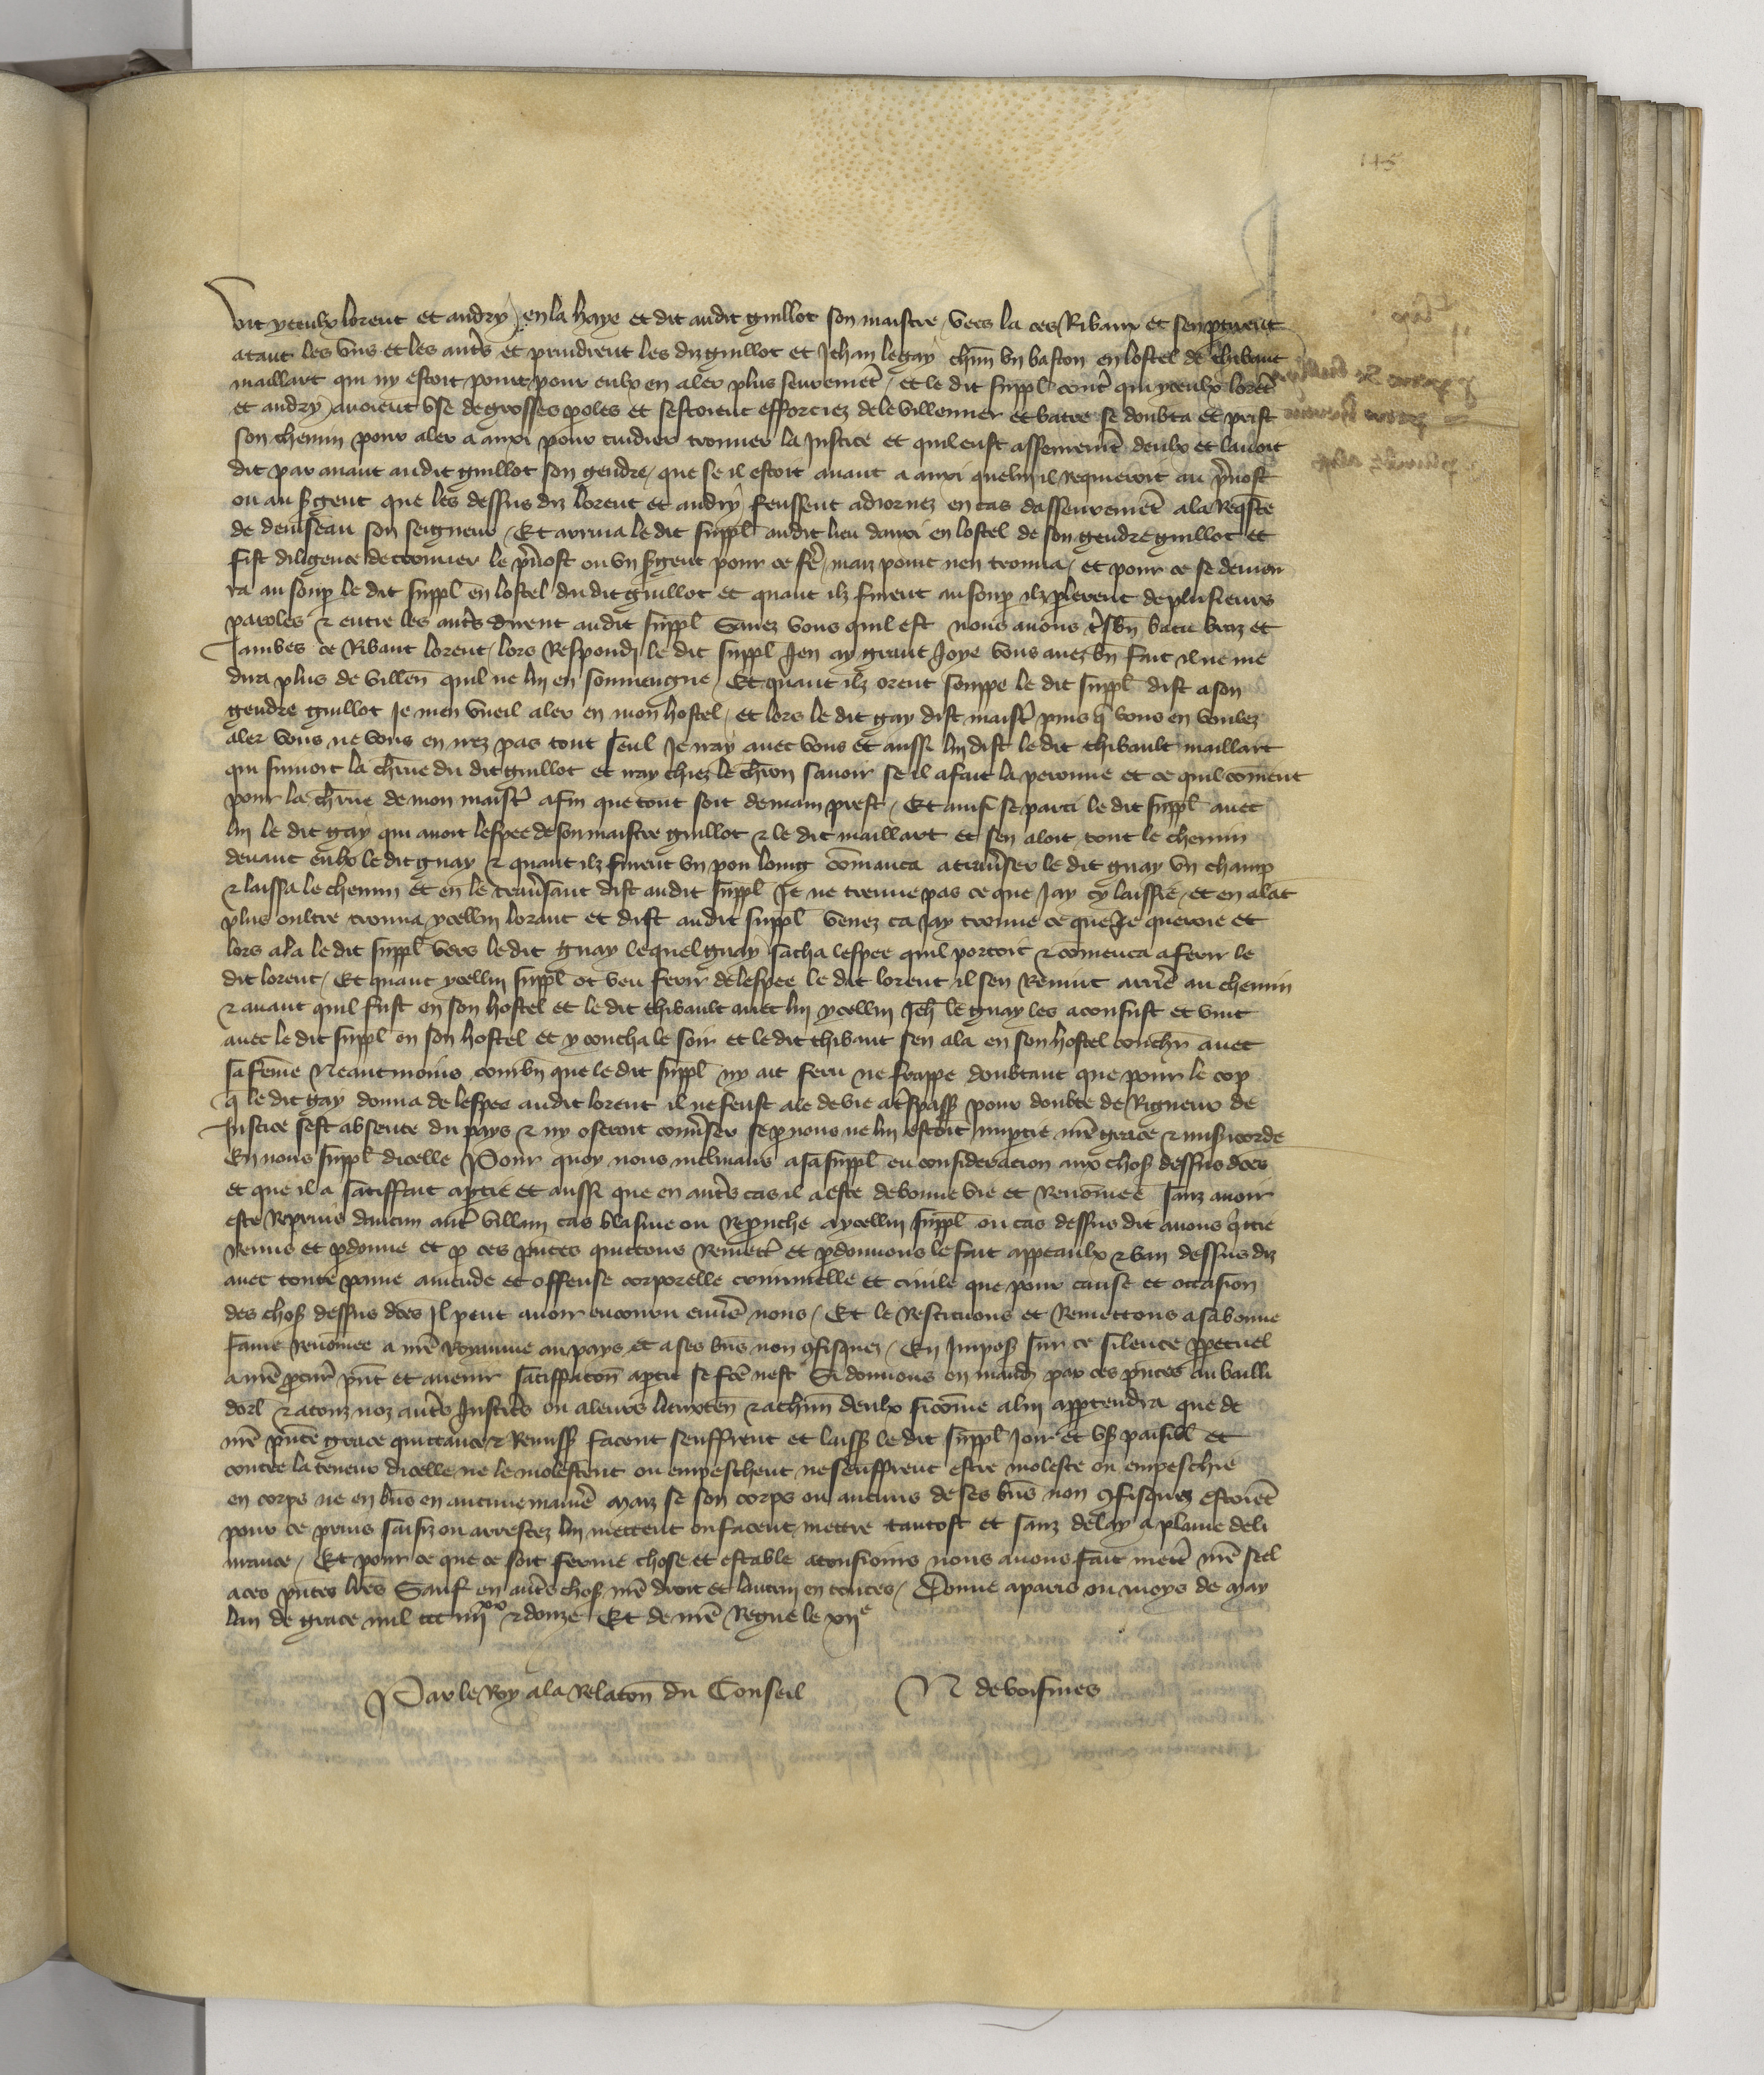 145
vit yceulx lorent et andry en la haye et dit audit guillot son maistre vees la ces Ribaux et sen ptirent
atant les vns et les autrs et prindrent les diz guillot et Jehan legay chun vn baston en lostel de thibaut
maillart qui ny estoit point pour eulx en aler plus seuremet et le dit suppl contr qui yceulx loret
et andry auoient vse de grosses poles et sestoient efforciez de le villenner et batre se doubta et prist
son chemin pour aler a auxi pour cuidier trouuer la Justice et quil eust asseuremet deulx et lauoit
dit par auant audit guillot son gendre que se il estoit auant a auxi quelui il requieroit au puost
ou au sgent que les dessus diz lorent et andry feussent adiornez en cas dasseuremet ala Reqste
de deuiseau son seigneur Et arriua le dit suppl audit lieu dauxi en lostel de son gendre guillot et
fist diligence de trouuer le puost ou vn sgent pour ce fe maiz point nen trouua et pour ce se demou
ra au soup le dit suppl en lostel du dit guillot et quant ilz furent au soup ilz plerent de plusieurs
paroles & entre les autrs dirent audit suppl Sauez vous quil est nous auons tsbn batu braz et
Jambes ce Ribaut lorent lors Respondi le dit suppl Jen ay grant Joye vous auez bn fait il ne me
dira plus de villen quil ne lui en souuiengne Et quant ilz orent souppe le dit suppl dist a son
gendre guillot Je men vueil aler en mon hostel et lors le dit gay dist maistr puis q vous en voulez
aler vous ne vous en irez pas tout seul Je iray auec vous et aussi lui dist le dit thibault maillart
qui suiuoit la chrue du dit guillot et iray chiez le chron sauoir se il a fait la peronne et ce quil coment
pour la chrue de mon maistr afin que tout soit demain prest Et ainsi se parti le dit suppl auec
lui le dit gay qui auoit lespee de son maistre guillot & le dit maillart et sen aloit tout le chemin
deuant eulx le dit guay & quant ilz furent vn pou loing comanca atrauser le dit guay vn champ
& laissa le chemin et en le trausant dist audit suppl Je ne treuue pas ce que Jay cy laissie et en alat
plus oultre trouua ycellui lorant et dist audit suppl venez ca Jay trouue ce que Je queroie et
lors ala le dit suppl vers le dit guay lequel guay sacha lespee quil portoit & comenca a ferir le
dit lorent Et quant ycellui suppl ot veu ferir de lespee le dit lorent il sen Reuint arre au chemin
& auant quil fust en son hostel et le dit thibault auec lui ycellui Jeh le guay les aconsust et vint
auec le dit suppl en son hostel et y coucha le soir et le dit thibaut sen ala en son hostel couchr auec
sa feme Neantmoins combn que le dit suppl ny ait feru ne frappe doubtant que pour le cop
q le dit gay donna de lespee audit lorent il ne feust ale de vie atspass pour doubte de Rigueur de
Justice sest absente du pays & ny oseroit conuser se p nous ne lui estoit imptie nre grace & misicorde
En nous suppl dicelle Pour quoy nous inclinans a sa suppl eu consideracion aux chos dessus dces
et que il a satiffait aptie et aussi que en autrs cas il a este de bonne vie et Renomee sanz auoir
este Repris daucun autr villain cas blasme ou Repuche a ycellui suppl ou cas dessus dit auons qttie
Remis et pdonne et p ces pntes quittons Remett et pdonnons le fait appeaulx & ban dessus diz
auec toute paine amende et offense corporelle criminelle et ciuile que pour cause et occasion
des chos dessus dces Il peut auoir encouru enus nous Et le Restituons et Remettons a sa bonne
fame renomee a nre Royaume au pays et a ses bns non 9fisquez En Impos sur ce silence ppetuel
a nre pcur pnt et auenir satisffacon aptie se fte nest Si donnons en mandt par ces pntes au bailli
dorl & atouz noz autrs Justicrs ou aleurs lieuxten & achun deulx sicome alui apptendra que de
nre pnte grace quittance & Remiss facent seuffrent et laiss le dit suppl Joir et vs paisibl et
contre la teneur dicelle ne le molestent ou empeschent ne seuffrent estre moleste ou empeschie
en corps ne en bns en aucune manie maiz se son corps ou aucuns de ses bns non 9fisquez estoiet
pour ce prins saisiz ou arrestez lui mettent ou facent mettre tantost et sanz delay a plaine deli
urance Et pour ce que ce soit ferme chose et estable atousiours nous auons fait mettr nre seel
aces pntes lres Sauf en autrs chos nre droit et lautrui en toutes Donne aparis ou moys de may
lan de grace mil ccc iiijxx & douze Et de nre Regne le xije
Par le Roy ala Relacon du Conseil N de voisines